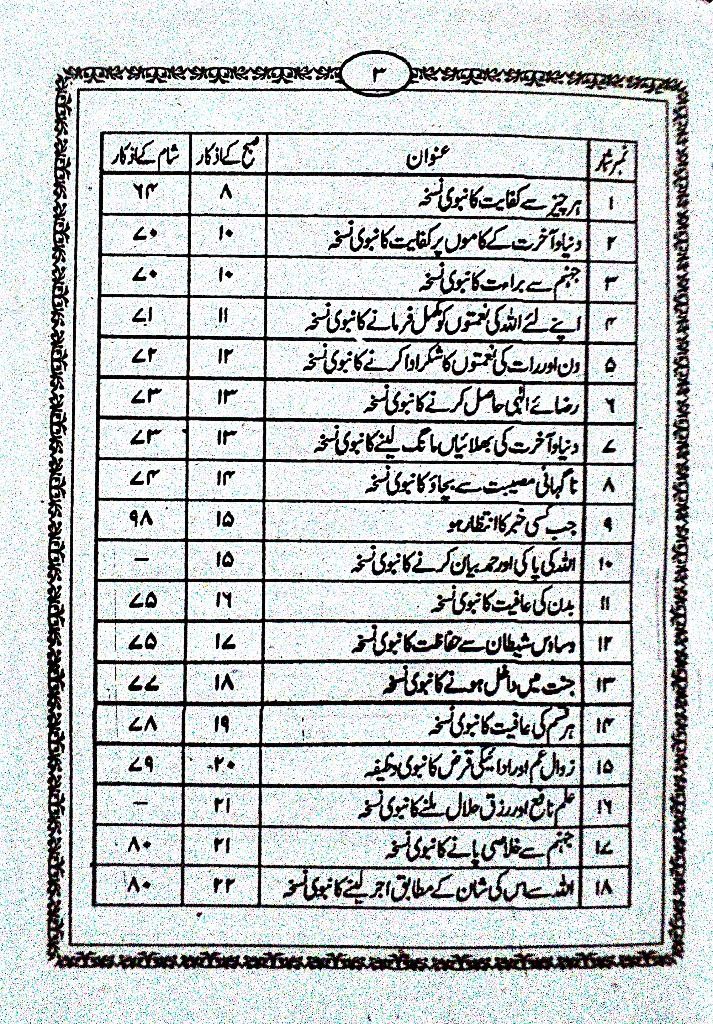 ۳
نمبر شمار عنوان صبح کے اذکار شام کے اذکار
۱ ہر چیز سے کفایت کا نبوی نسخہ ۸ ۶۴
۲ دنیا و آخرت کے کاموں پر کفایت کا نبوی نسخہ ۱۰ ۷۰
۳ جہنم سے براءت کا نبوی نسخہ ۱۰ ۷۰
۴ اپنے لئے اللہ کی نعمتوں کو مکمل فرمانے کا نبوی نسخہ ۱۱ ۷۱
۵ دن اور رات کی نعمتوں کا شکر ادا کرنے کا نبوی نسخہ ۱۲ ۷۲
۶ رضائے الٰہی حاصل کرنے کا نبوی نسخہ ۱۳ ۷۳
۷ دنیا و آخرت کی بھلائیاں مانگ لینے کا نبوی نسخہ ۱۳ ۷۳
۸ ناگہانی مصیبت سے بچاؤ کا نبوی نسخہ ۱۴ ۷۴
۹ جب کسی خبر کا انتظار ہو ۱۵ ۹۸
۱۰ اللہ کی پاکی اور حمد بیان کرنے کا نبوی نسخہ ۱۵ –
۱۱ بدن کی عافیت کا نبوی نسخہ ۱۶ ۷۵
۱۲ وساوس شیطان سے حفاظت کا نبوی نسخہ ۱۷ ۷۵
۱۳ جنت میں داخل ہونے کا نبوی نسخہ ۱۸ ۷۷
۱۴ ہر قسم کی عافیت کا نبوی نسخہ ۱۹ ۷۸
۱۵ زوال غم اور ادائیگی قرض کا نبوی وظیفہ ۲۰ ۷۹
۱۶ علم نافع اور رزق حلال ملنے کا نبوی نسخہ ۲۱ –
۱۷ جہنم سے خلاصی پانے کا نبوی نسخہ ۲۱ ۸۰
۱۸ اللہ سے اس کی شان کے مطابق اجر لینے کا نبوی نسخہ ۲۲ ۸۰